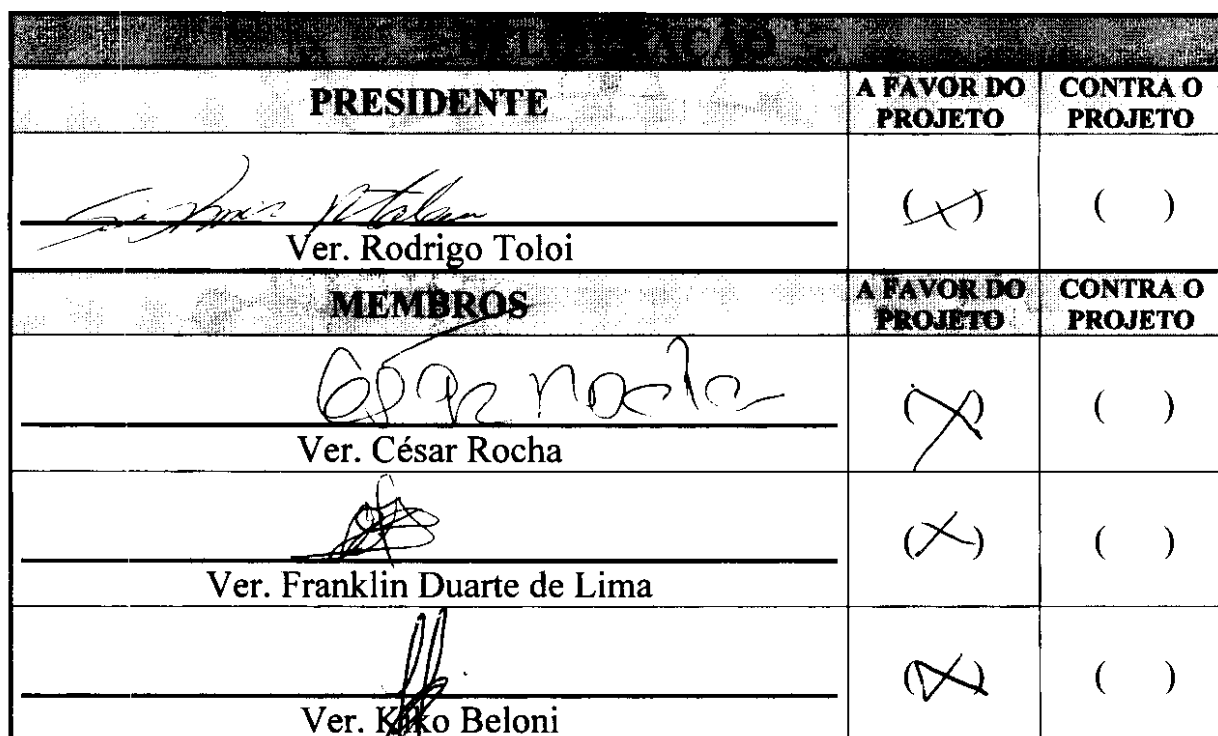 DELIBERAÇÃO
PRESIDENTE
A FAVOR DO PROJETO
CONTRA O PROJETO
(X)
( )
Ver. Rodrigo Toloi
MEMBROS
A FAVOR DO PROJETO
CONTRA O PROJETO
César Rocha
(X)
( )
Ver. César Rocha
(X)
( )
Ver. Franklin Duarte de Lima
(X)
( )
Ver. Kiko Beloni